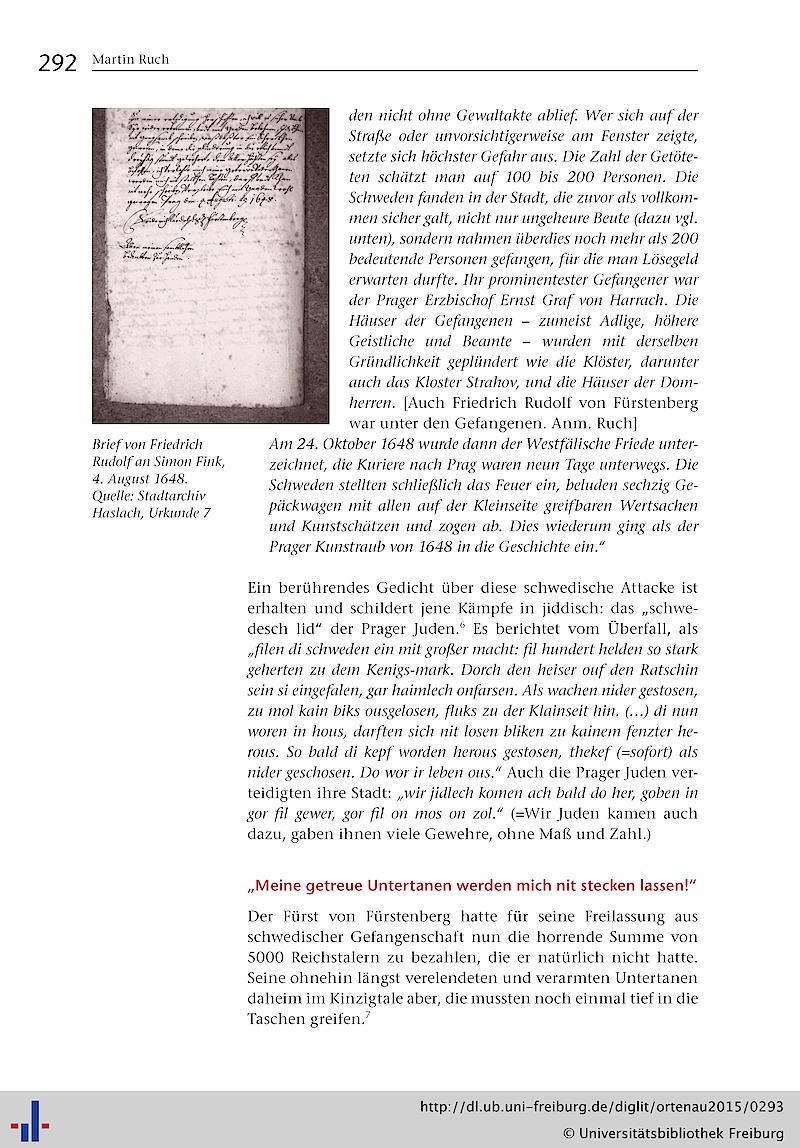 292 Martin Ruch
den nicht ohne Gewaltakte ablief. Wer sich auf der
Straße oder unvorsichtigerweise am Fenster zeigte,
setzte sich höchster Gefahr aus. Die Zahl der Getöte-
ten schätzt man auf 100 bis 200 Personen. Die
Schweden fanden in der Stadt, die zuvor als vollkom-
men sicher galt, nicht nur ungeheure Beute (dazu vgl.
unten), sondern nahmen überdies noch mehr als 200
bedeutende Personen gefangen, für die man Lösegeld
erwarten durfte. Ihr prominentester Gefangener war
der Prager Erzbischof Ernst Graf von Harrach. Die
Häuser der Gefangenen – zumeist Adlige, höhere
Geistliche und Beamte – wurden mit derselben
Gründlichkeit geplündert wie die Klöster, darunter
auch das Kloster Strahov, und die Häuser der Dom-
herren. [Auch Friedrich Rudolf von Fürstenberg
war unter den Gefangenen. Anm. Ruch]
Brief von Friedrich
Rudolf an Simon Fink,
4. August 1648.
Quelle: Stadtarchiv
Haslach, Urkunde 7
Am 24. Oktober 1648 wurde dann der Westfälische Friede unter-
zeichnet, die Kuriere nach Prag waren neun Tage unterwegs. Die
Schweden stellten schließlich das Feuer ein, beluden sechzig Ge-
päckwagen mit allen auf der Kleinseite greifbaren Wertsachen
und Kunstschätzen und zogen ab. Dies wiederum ging als der
Prager Kunstraub von 1648 in die Geschichte ein.“
Ein berührendes Gedicht über diese schwedische Attacke ist
erhalten und schildert jene Kämpfe in jiddisch: das „schwe-
desch lid“ der Prager Juden.⁶ Es berichtet vom Überfall, als
„filen di schweden ein mit großer macht: fil hundert helden so stark
geherten zu dem Kenigs-mark. Dorch den heiser ouf den Ratschin
sein si eingefalen, gar haimlech onfarsen. Als wachen nider gestosen,
zu mol kain biks ousgelosen, fluks zu der Klainseit hin. (…) di nun
woren in hous, darften sich nit losen bliken zu kainem fenzter he-
rous. So bald di kepf worden herous gestosen, thekef (=sofort) als
nider geschosen. Do wor ir leben ous.“ Auch die Prager Juden ver-
teidigten ihre Stadt: „wir jidlech komen ach bald do her, goben in
gor fil gewer, gor fil on mos on zol.“ (=Wir Juden kamen auch
dazu, gaben ihnen viele Gewehre, ohne Maß und Zahl.)
„Meine getreue Untertanen werden mich nit stecken lassen!“
Der Fürst von Fürstenberg hatte für seine Freilassung aus
schwedischer Gefangenschaft nun die horrende Summe von
5000 Reichstalern zu bezahlen, die er natürlich nicht hatte.
Seine ohnehin längst verelendeten und verarmten Untertanen
daheim im Kinzigtale aber, die mussten noch einmal tief in die
Taschen greifen.⁷
http://dl.ub.uni-freiburg.de/diglit/ortenau2015/0293
© Universitätsbibliothek Freiburg